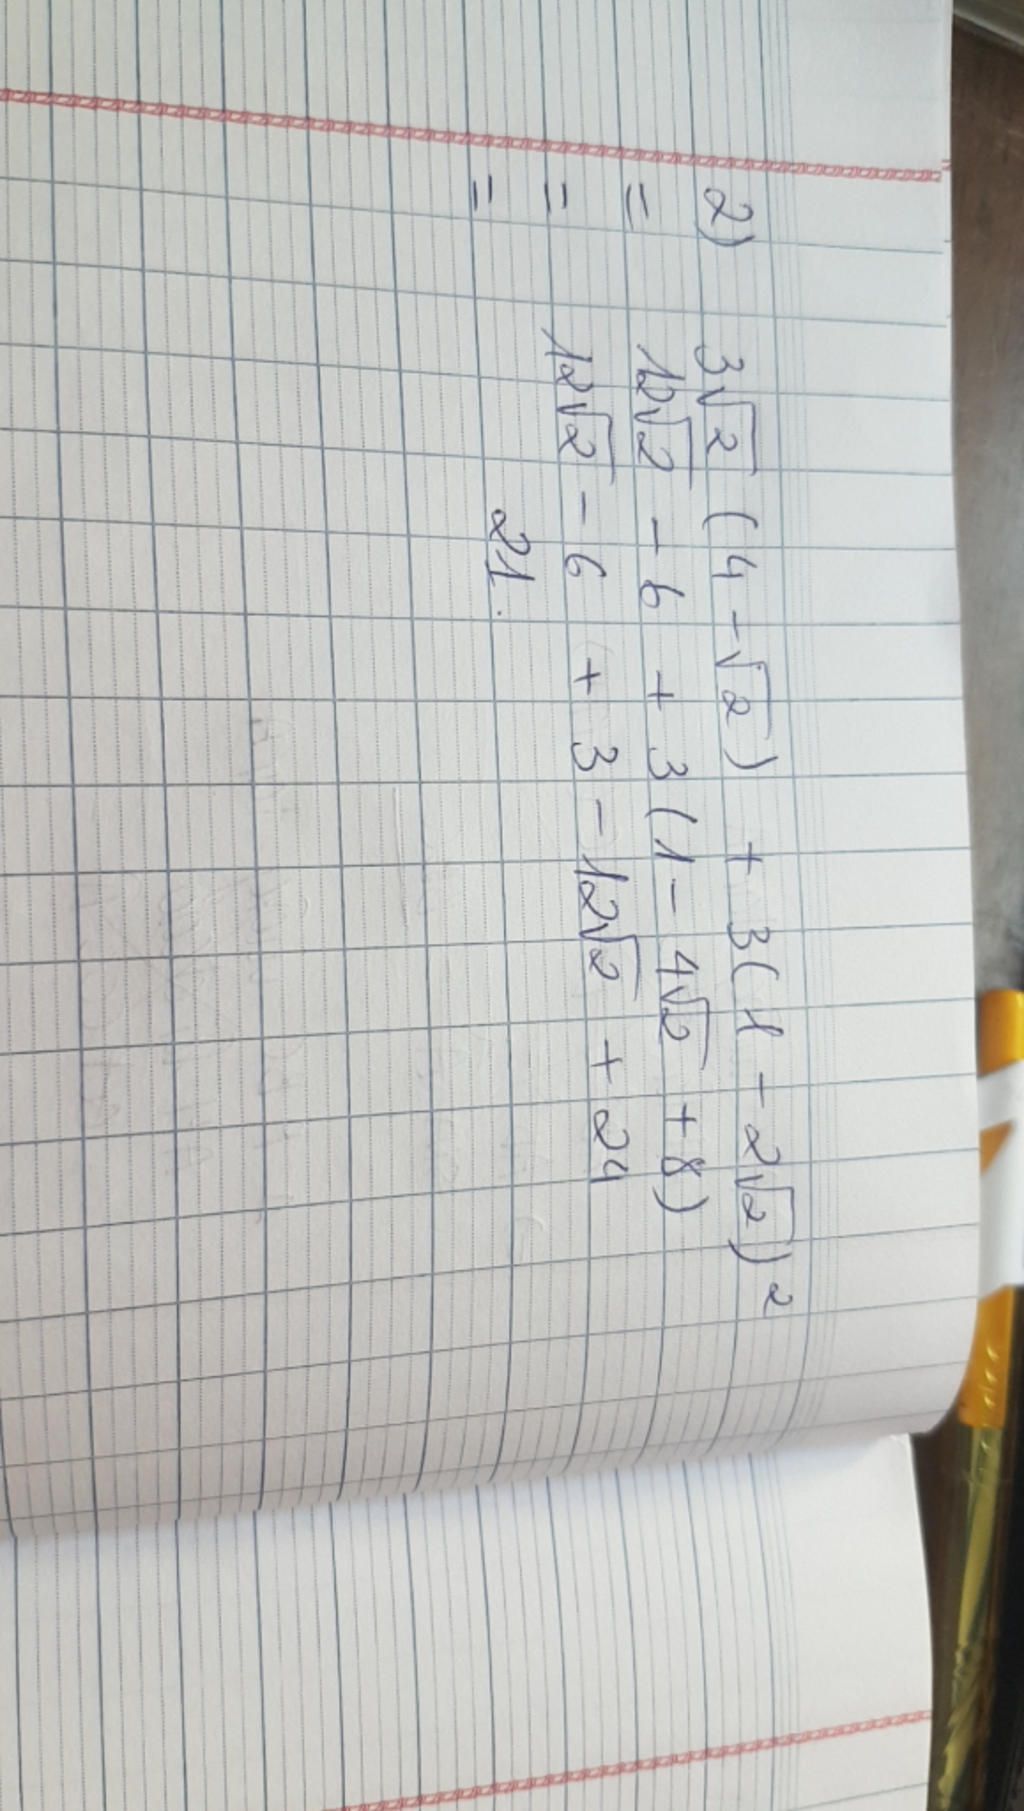 2) 3√2 (4 - √2) + 3(1 - 2√2)²
= 12√2 - 6 + 3(1 - 4√2 + 8)
= 12√2 - 6 + 3 - 12√2 + 24
= 21.